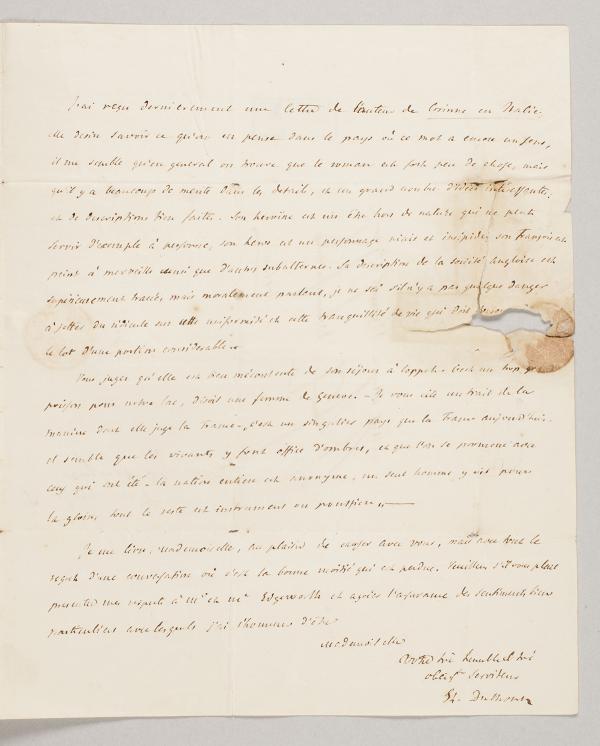 J'ai reçu dernierement une lettre de l'auteur de Corinne en Italie
elle desire savoir ce qu'on en pense dans le pays où ce mot a encore un sens,
il me semble qu'en general on trouve que le roman est fort peu de chose, mais
qu'il y a beaucoup de merite dans les detail, et un grand nombre d'idées interessantes,
et de descriptions bien faites. Son heroine est un être hors de nature qui ne peut
servir d'exemple à personne, son heros est un personnage niais et insipide, son François est
peint à merveille ainsi que d'autres subalternes. La description de la société angloise est
supérieurement tracée mais moralement parlant, je ne sai s'il n'y a pas quelque danger
à jetter du ridicule sur cette uniformité et cette tranquillité de vie qui doit
le lot d'une portion considerable.
Vous jugez qu'elle est bien mécontente de son séjour à Coppet. C'est un trop
poisson pour notre lac, disoit une femme de Geneve. Je vous cite un trait de la
maniere dont elle juge la France, c'est un singulier pays que la France aujourd'hui.
il semble que les vivants y font office d'ombres, et que l'on se promene avec
ceux qui ont été. la nation entiere est anonyme, un seul homme y vit pour
la gloire, tout le reste est instrument ou poussiere.
Je me livre, mademoiselle, au plaisir de causer avec vous, mais avec tout le
regret d'une conversation où c'est la bonne moitié qui est perdue. Veuillez s'il vous plait
presenter mes respects à Mr et Me Edgeworth et agréer l'assurance des sentiments bien
particuliers avec lesquels j'ai l'honneur d'être
Mademoiselle
Votre très humble et très
obligt Serviteur
Et. Dumont